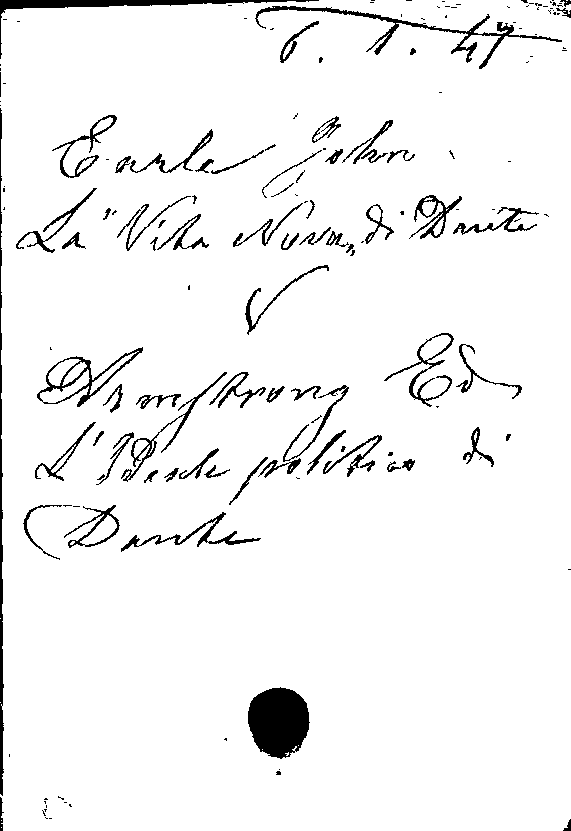 6. 1. 47
Earle John
La "Vita Nova„ di Dante
Armstrong Ed.
L'Ideale politico di
Dante